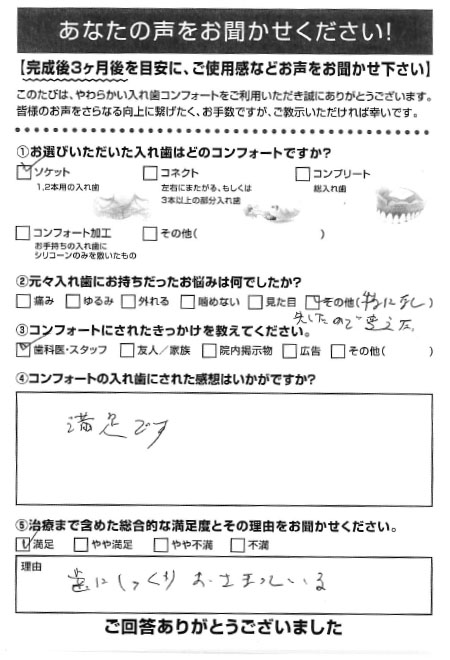 あなたの声をお聞かせください!
【完成後3ヶ月後を目安に、ご使用感などお声をお聞かせ下さい】
このたびは、やわらかい入れ歯コンフォートをご利用いただき誠にありがとうございます。
皆様のお声をさらなる向上に繋げたく、お手数ですが、ご教示いただければ幸いです。
①お選びいただいた入れ歯はどのコンフォートですか?
ソケット
1,2本用の入れ歯
コネクト
左右にまたがる、もしくは
3本以上の部分入れ歯
コンプリート
総入れ歯
コンフォート加工
お手持ちの入れ歯に
シリコーンのみを敷いたもの
その他( )
②元々入れ歯にお持ちだったお悩みは何でしたか?
痛み ゆるみ 外れる 噛めない 見た目 その他(特に无し)
失したので考えた。
③コンフォートにされたきっかけを教えてください。
歯科医・スタッフ 友人/家族 院内掲示物 広告 その他( )
④コンフォートの入れ歯にされた感想はいかがですか?
満足です
⑤治療まで含めた総合的な満足度とその理由をお聞かせください。
満足 やや満足 やや不満 不満
理由
歯にしっくりおさまっている
ご回答ありがとうございました